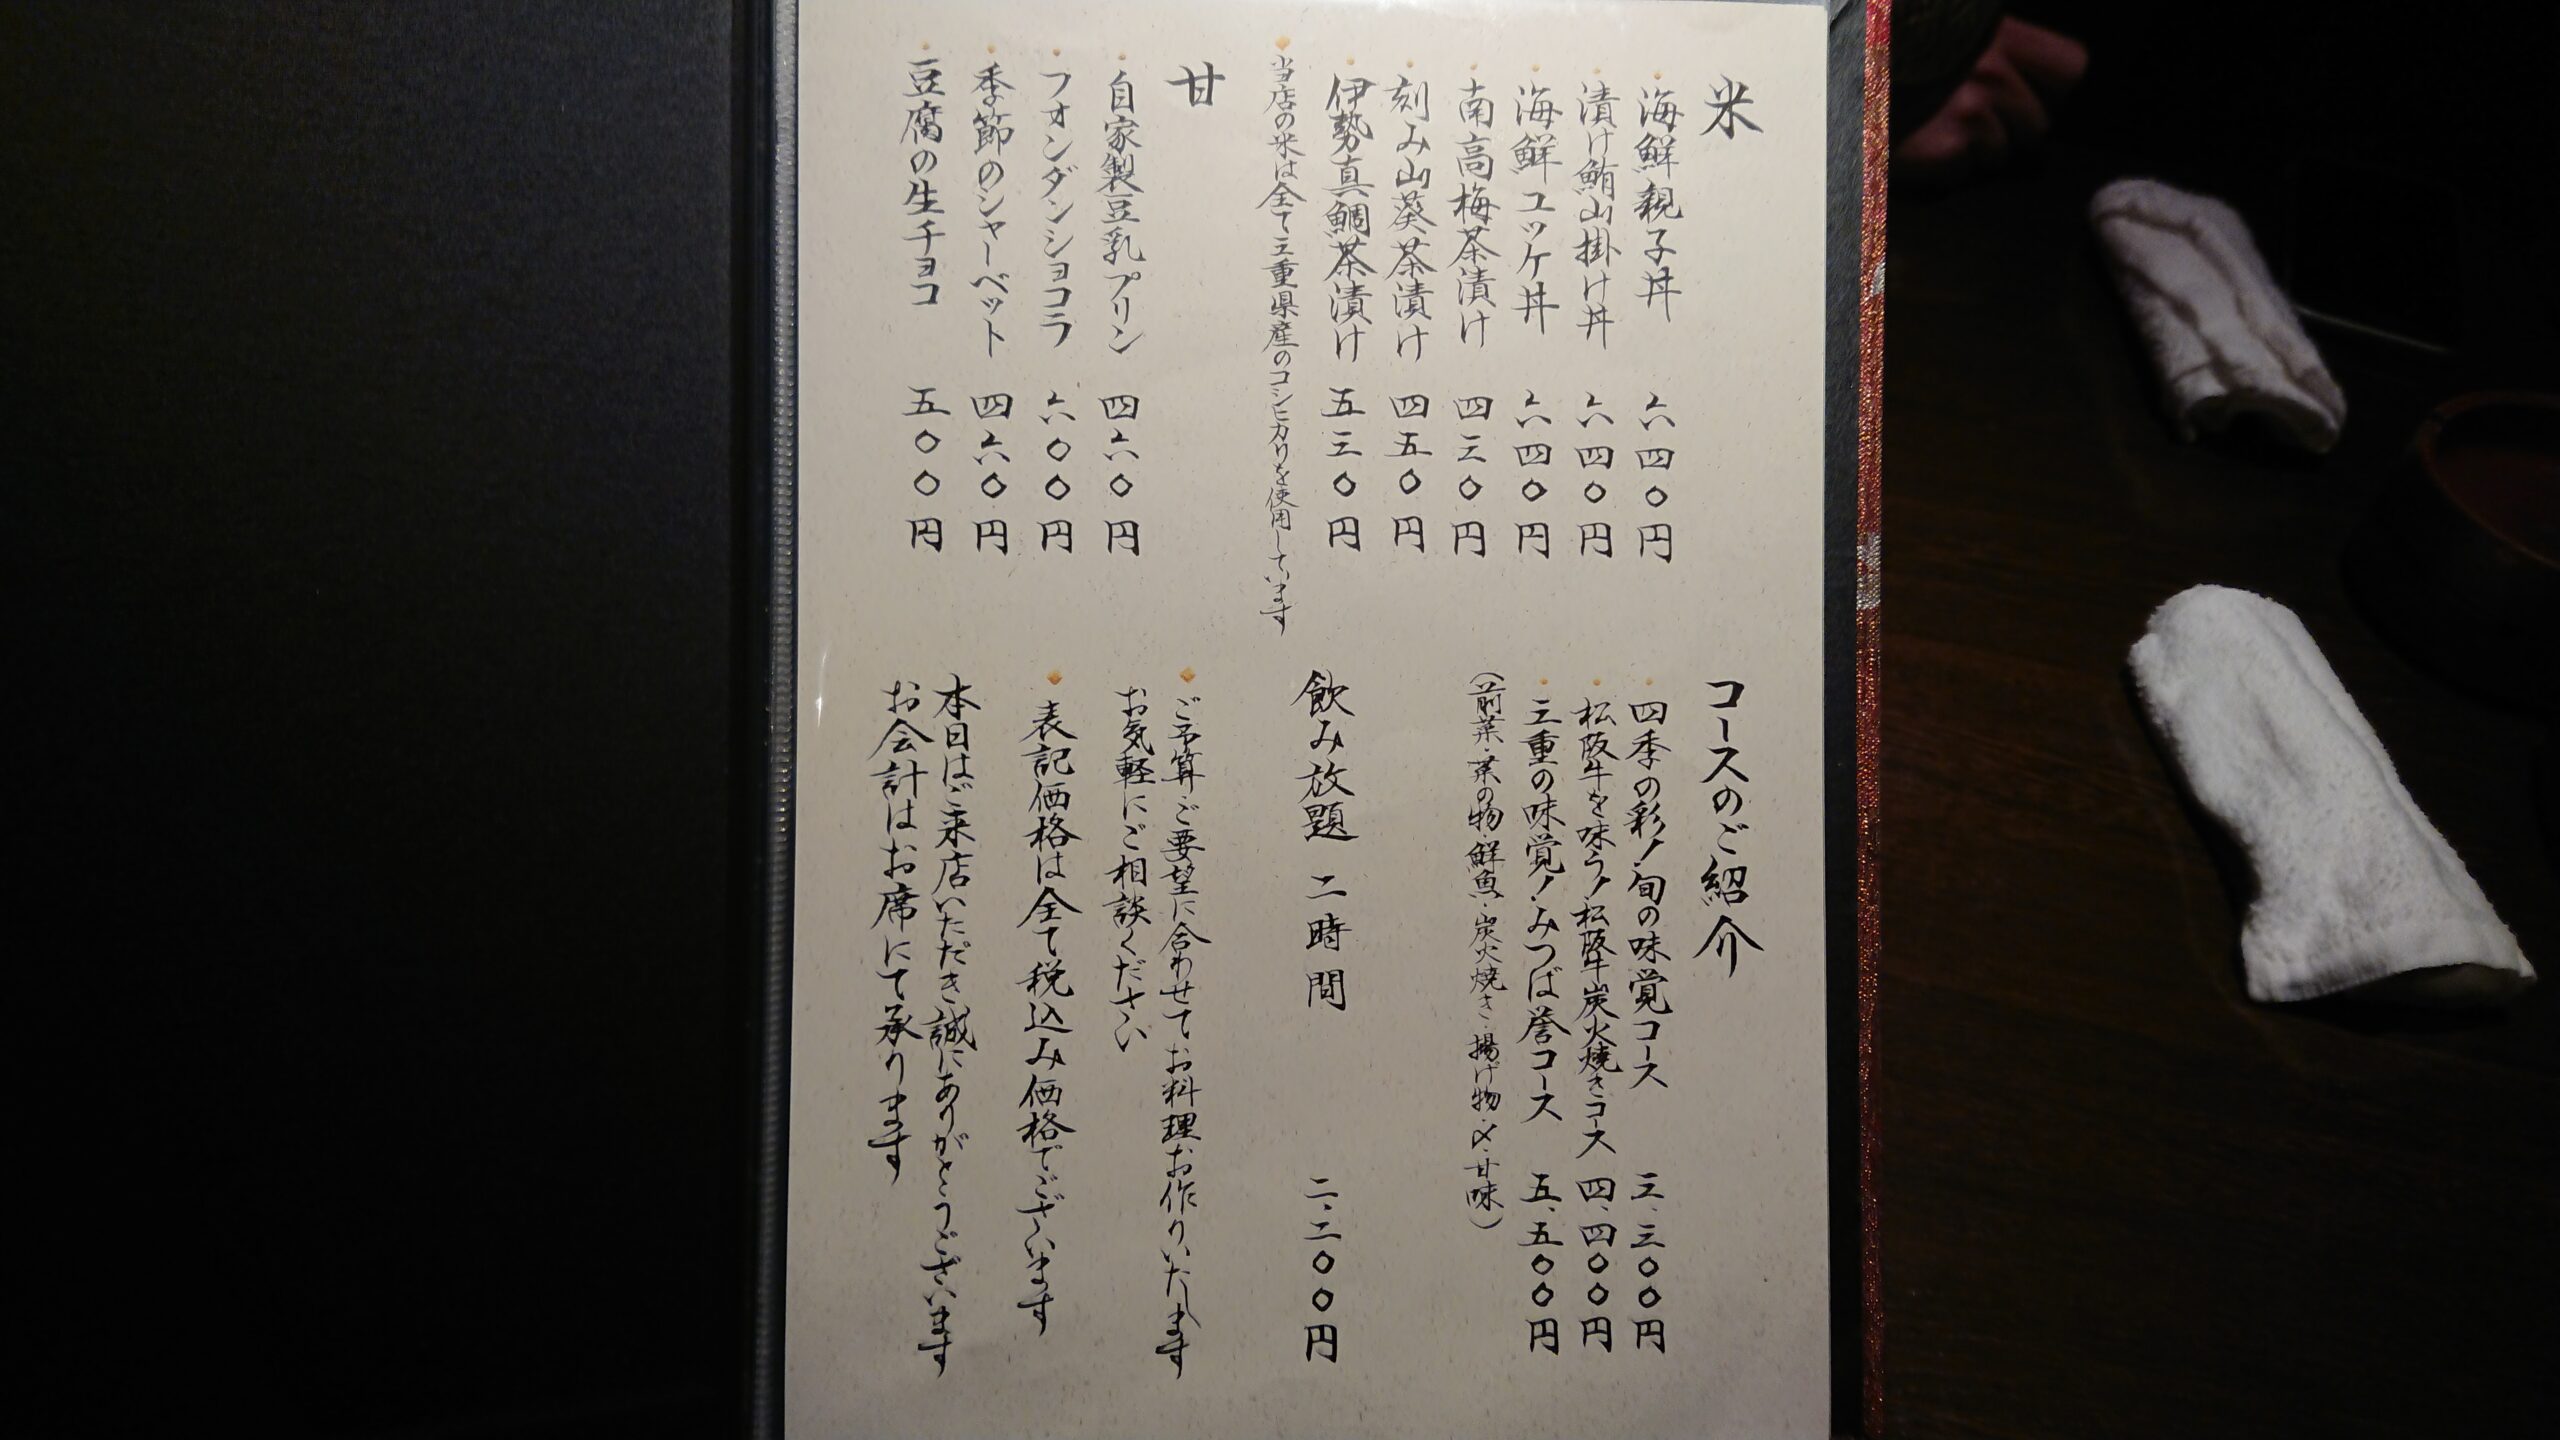 米
海鮮親子丼 六四〇円
漬け鮪山掛け丼 六四〇円
海鮮ユッケ丼 六四〇円
南高梅茶漬け 四三〇円
刻み山葵茶漬け 四五〇円
伊勢真鯛茶漬け 五三〇円
当店の米は全て三重県産のコシヒカリを使用しています
甘
自家製豆乳プリン 四六〇円
フォンダンショコラ 六〇〇円
季節のシャーベット 四六〇円
豆腐の生チョコ 五〇〇円
コースのご紹介
四季の彩！旬の味覚コース 三、三〇〇円
松阪牛を味う！松阪牛炭火焼きコース 四、四〇〇円
三重の味覚！みつば誉コース 五、五〇〇円
（前菜・菜の物・鮮魚・炭火焼き・揚げ物・〆・甘味）
飲み放題 二時間 二、二〇〇円
ご予算・ご要望に合わせてお料理お作りいたします
お気軽にご相談ください
表記価格は全て税込み価格でございます
本日はご来店いただき誠にありがとうございます
お会計はお席にて承ります